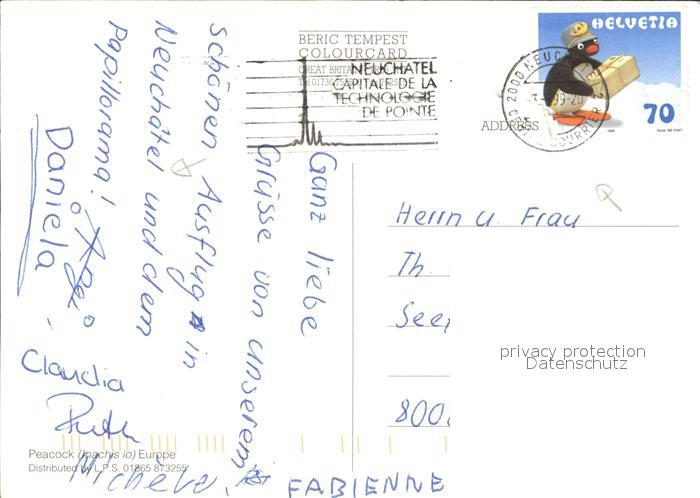 Ganz liebe
Grüsse von unserem
schönen Ausflug in
Neuchâtel und dem
Papillorama!
Daniela
Claudia
Ruth
FABIENNE
BERIC TEMPEST
COLOURCARD
GREAT BRITAIN
NEUCHATEL
CAPITALE DE LA
TECHNOLOGIE
DE POINTE
HELVETIA
70
2000 NEUC
ADDRESS
Herrn u. Frau
Th.
See
800
privacy protection
Datenschutz
Peacock (Inachis io) Europe
Distributed by L.P.S. 01865 873255